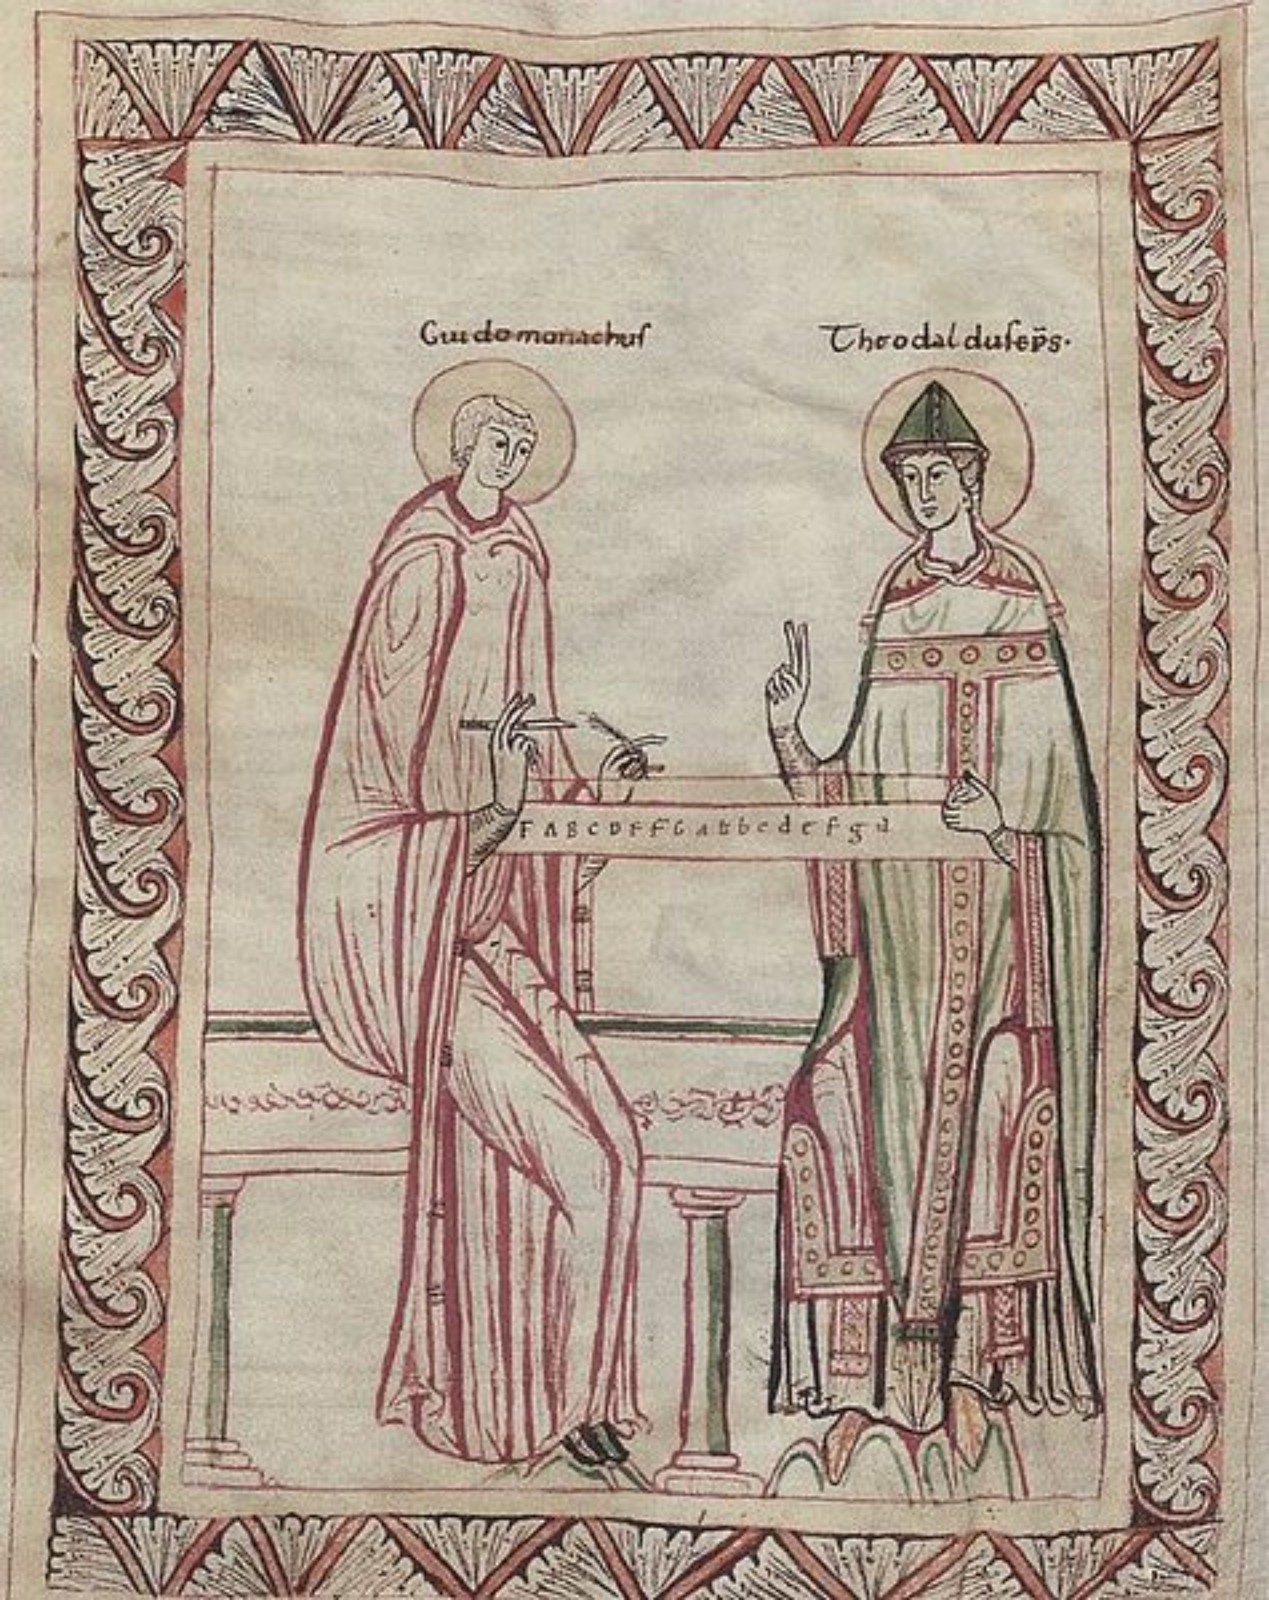 Guido monachuſ
Theodalduſ ep̄s·
Γ A B C D E F G a b ♮ c d e f g a